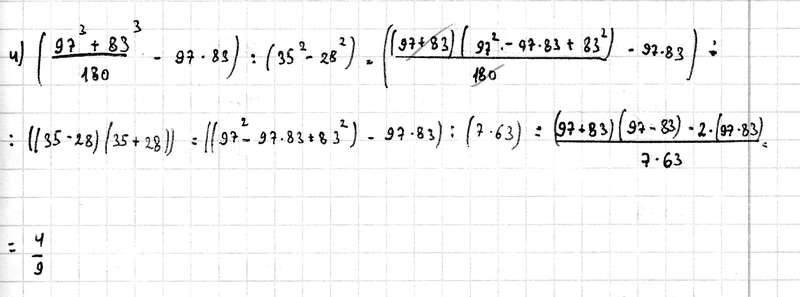 и) ((97³ + 83³)/180 - 97·83) : (35² - 28²) = (((97+83)(97² - 97·83 + 83²))/180 - 97·83) :
: ((35-28)(35+28)) = ((97² - 97·83 + 83²) - 97·83) : (7·63) = ((97+83)(97-83) - 2·(97·83))/(7·63) =
= 4/9